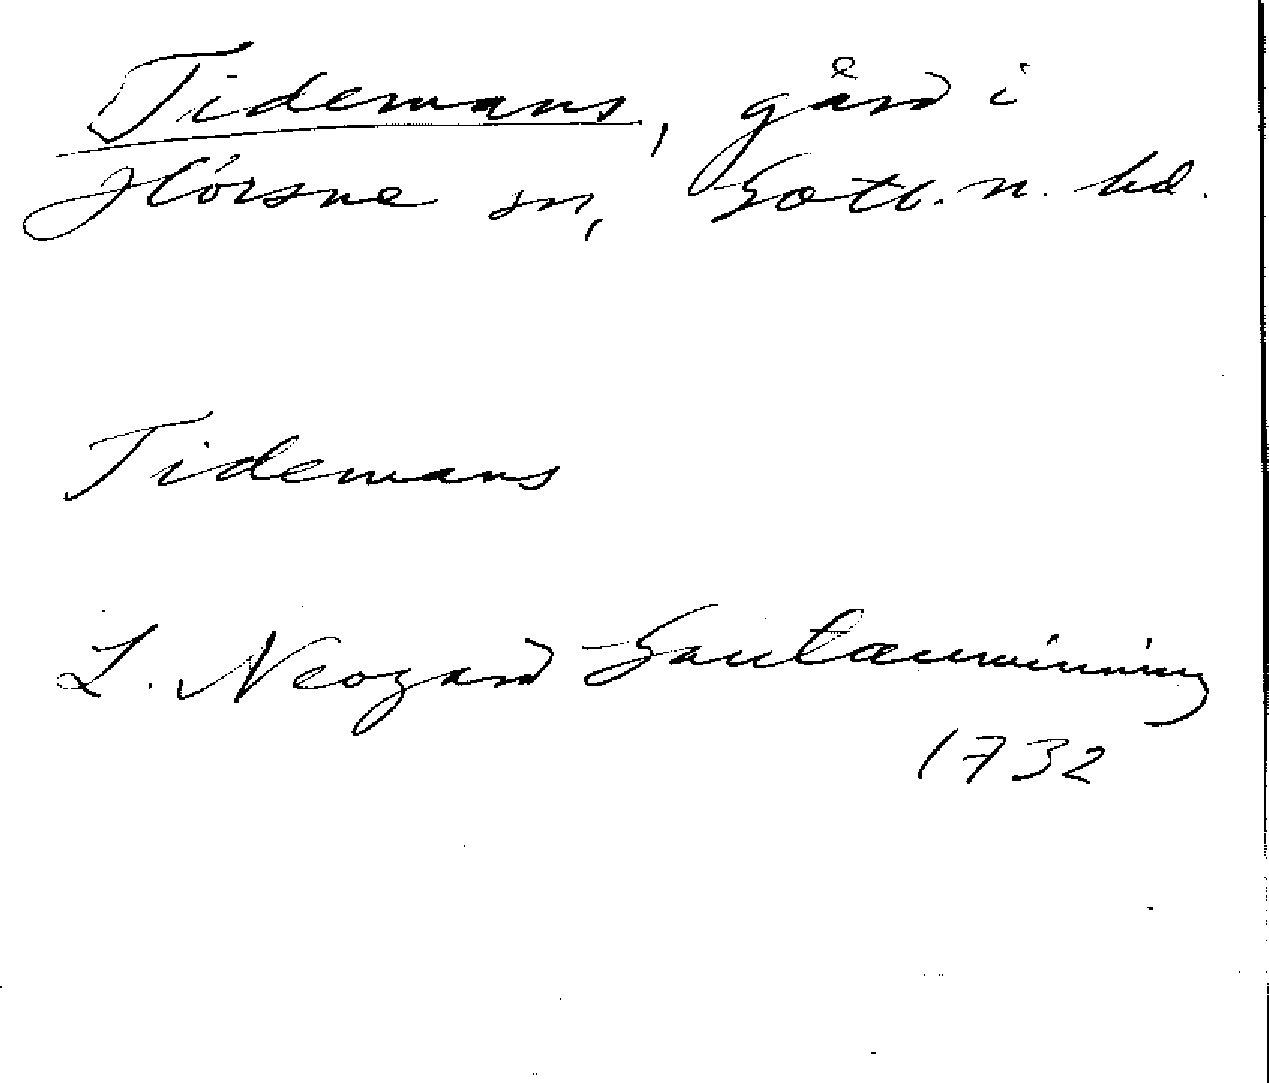 Tidemans, gård i
Hörsne sn, Gotl. n. hd.
Tidemans
L. Neogard Gautauminning
1732